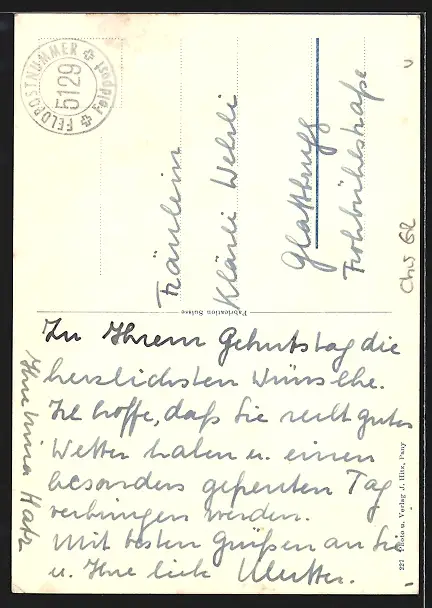 FELDPOSTNUMMER
5129
Feldpost
Fräulein
Klärli Wehrli
Glattbrugg
Frohbühlstraße
Fabrication Suisse
Zu Ihrem Geburtstag die
herzlichsten Wünsche.
Ich hoffe, daß Sie recht gutes
Wetter haben u. einen
besonders gefreuten Tag
verbringen werden.
Mit besten Grüßen an Sie
u. Ihre liebe Mutter.
Ihre
227 Photo u. Verlag J. Hitz, Pany